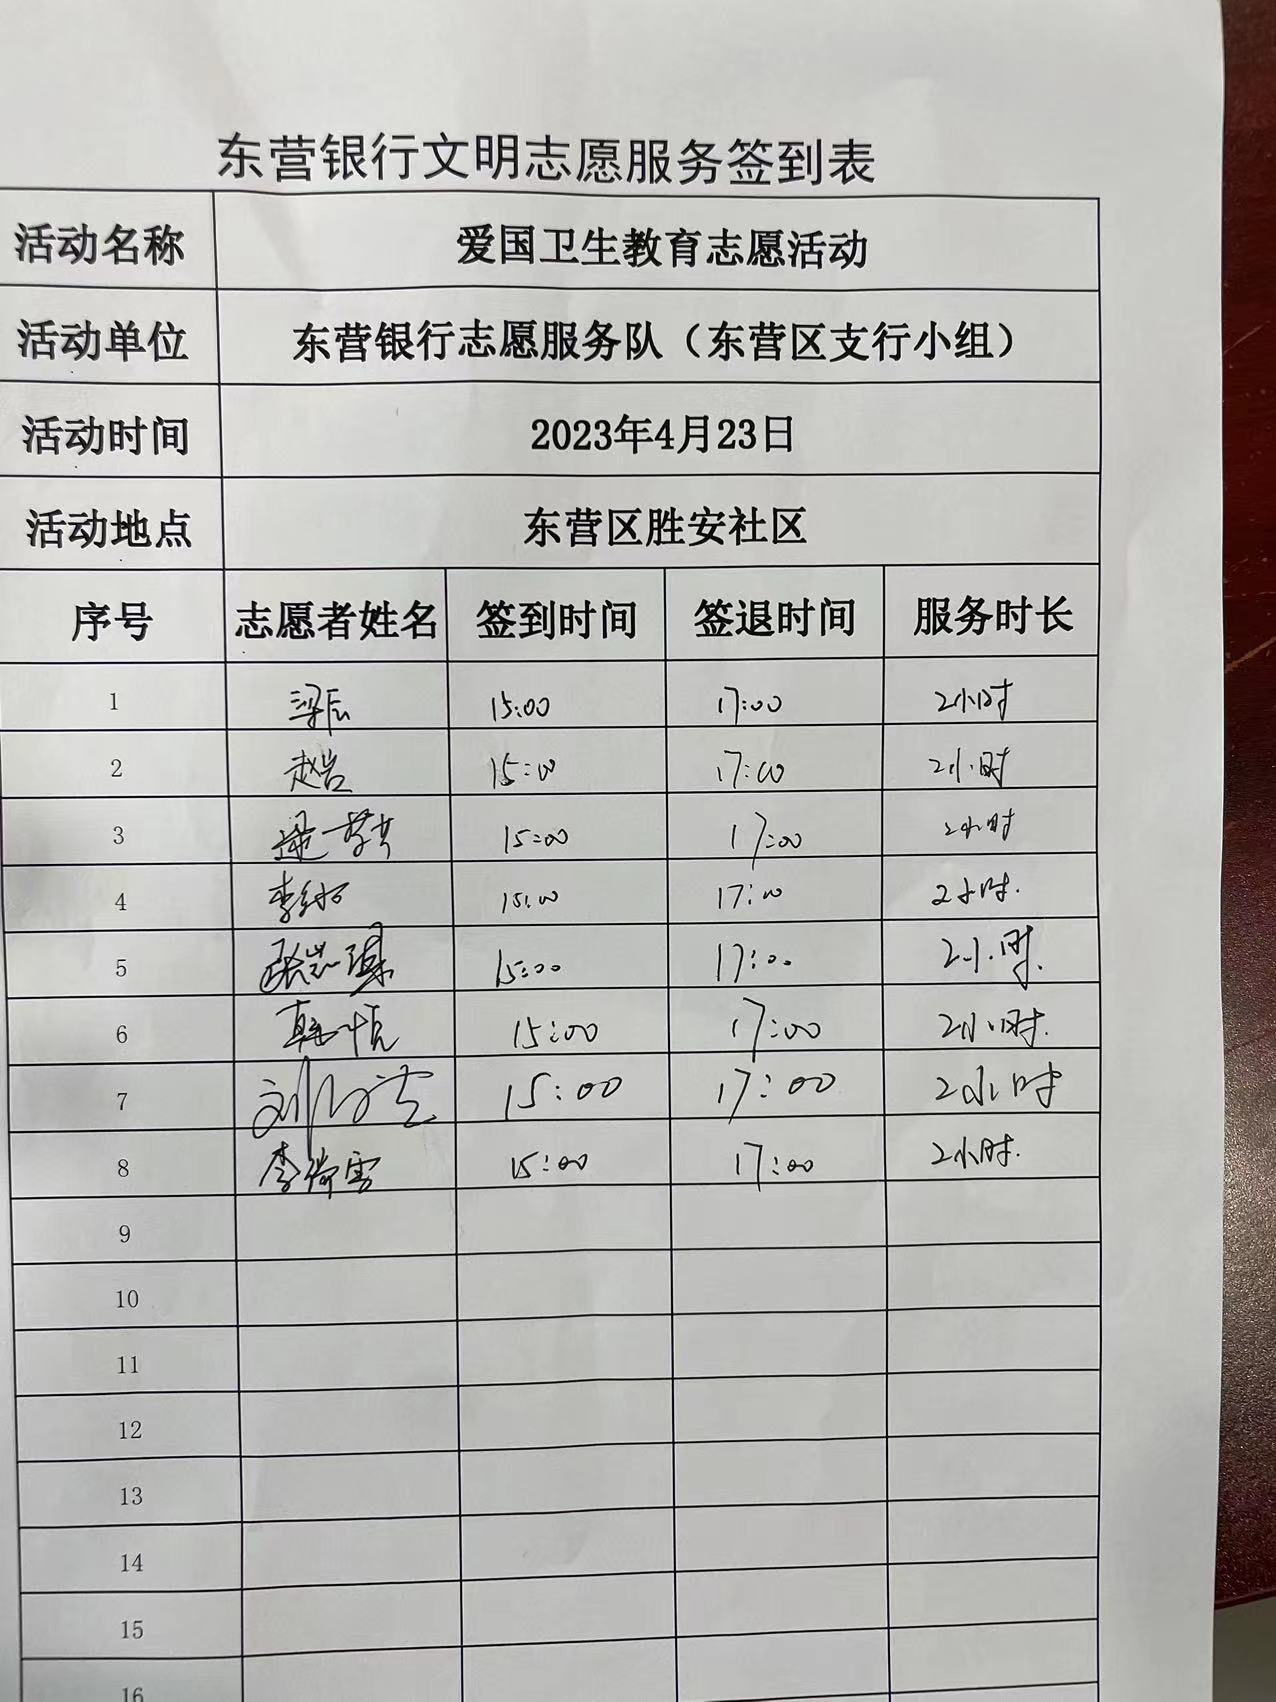 东营银行文明志愿服务签到表
活动名称 爱国卫生教育志愿活动
活动单位 东营银行志愿服务队（东营区支行小组）
活动时间 2023年4月23日
活动地点 东营区胜安社区
序号 志愿者姓名 签到时间 签退时间 服务时长
1 梁辰 15:00 17:00 2小时
2 赵岩 15:00 17:00 2小时
3 15:00 17:00 2小时
4 李 15:00 17:00 2小时.
5 张 15:00 17:00 2小时.
6 韩 15:00 17:00 2小时.
7 刘 15:00 17:00 2小时
8 李 雪 15:00 17:00 2小时.
9
10
11
12
13
14
15
16